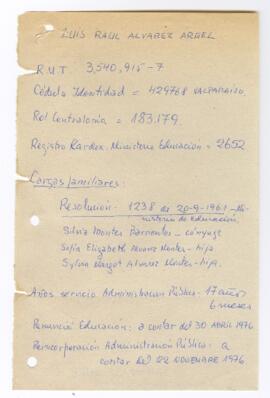 LUIS RAUL ALVAREZ ARGEL
R.U.T. 3,540,915-7
Cédula Identidad = 429768 VALPARAISO.
Rol Contraloría = 183.179
Registro Kardex. Ministerio Educación = 2652
Cargas familiares:
Resolución 1238 de 20-9-1961 - Mi-
nisterio de educación
Silvia Montes Barrientos - cónyuge
Sofía Elizabeth Alvarez Montes - hija
Sylvia Margot Alvarez Montes - hija.
Años servicio Administración Pública - 17 años
6 meses
Renuncia Educación: a contar del 30 ABRIL 1976
Reincorporación Administración Pública: a
contar del 22 NOVIEMBRE 1976